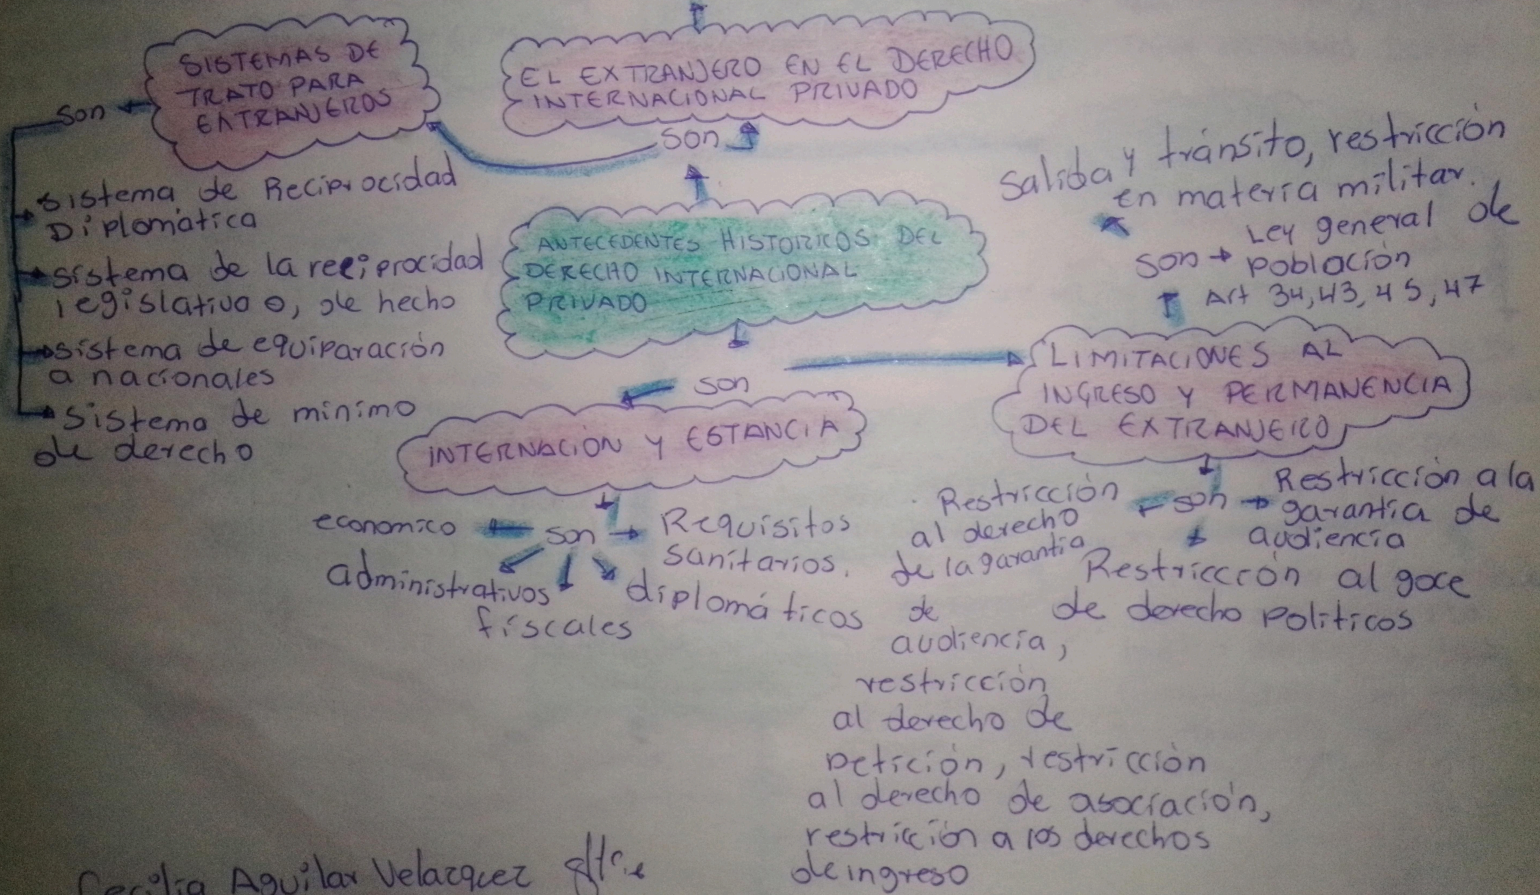 SISTEMAS DE
TRATO PARA
EXTRANJEROS
son
sistema de Reciprocidad
Diplomática
sistema de la reciprocidad
legislativa o, de hecho
sistema de equiparación
a nacionales
Sistema de mínimo
de derecho
EL EXTRANJERO EN EL DERECHO
INTERNACIONAL PRIVADO
son
ANTECEDENTES HISTORICOS DEL
DERECHO INTERNACIONAL
PRIVADO
son
INTERNACIÓN Y ESTANCIA
son
economico
administrativos
fiscales
diplomáticos
Requisitos
sanitarios.
Salida y tránsito, restricción
en materia militar.
son
Ley general de
población
Art 34,43,45,47
LIMITACIONES AL
INGRESO Y PERMANENCIA
DEL EXTRANJERO
son
Restricción a la
garantía de
audiencia
Restriccción al goce
de derecho politicos
Restricción
al derecho
de la garantía
de
audiencia,
restricción
al derecho de
petición, restricción
al derecho de asociación,
restricción a los derechos
de ingreso
Cecilia Aguilar Velazquez